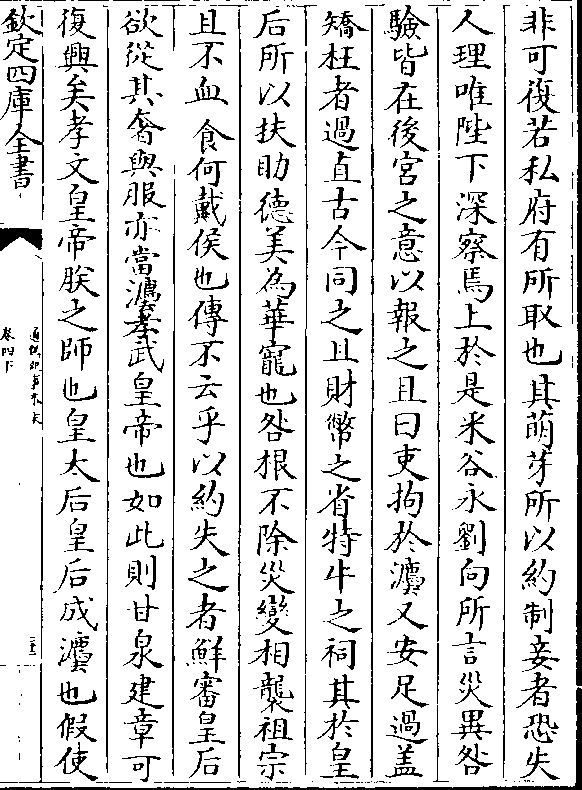 非可復若私府有所取也其萌芽所以約制妾者恐失
人理唯陛下深察焉上於是采谷永劉向所言災異咎
驗皆在後宫之意以報之且曰吏拘於灋又安足過盖
矯枉者過直古今同之且財幣之省特牛之祠其於皇
后所以扶助德美為華寵也咎根不除災變相襲祖宗
且不血食何戴侯也傳不云乎以約失之者鮮審皇后
欲從其奢與服亦當灋孝武皇帝也如此則甘泉建章可
復興矣孝文皇帝朕之師也皇太后皇后成灋也假使
欽定四庫全書
通鑑紀事本末
卷四下